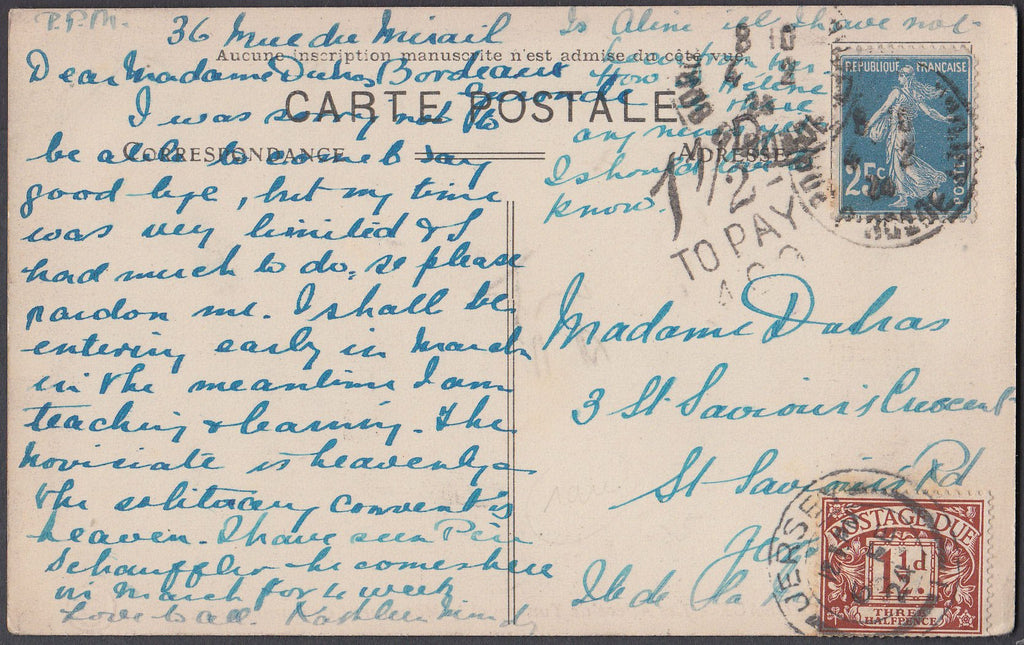 P.P.M.
36 Rue du Mirail
Aucune inscription manuscrite n'est admise du côté vue.
Dear Madame Dubras Bordeaux
Gironde
CARTE POSTALE
I was sorry not to
CORRESPONDANCE
ADRESSE
be able to come & say
good bye, but my time
was very limited & I
had much to do, so please
pardon me. I shall be
entering early in March
in the meantime I am
teaching & learning. The
noviciate is heavenly &
the solitary convent is
heaven. I have seen Père
Schauffler he comes here
in March for a week
Love to all. Kathleen
Is Aline ill I have not
How Hélène
any news
I should
know.
RÉPUBLIQUE FRANÇAISE
25c
POSTES
8 10
4 2
1 1/2 D
TO PAY
Madame Dubras
3 St Saviour's Crescent
St Saviour's Rd
Ile de la
JERSEY
POSTAGE DUE
1½d
THREE
HALFPENCE